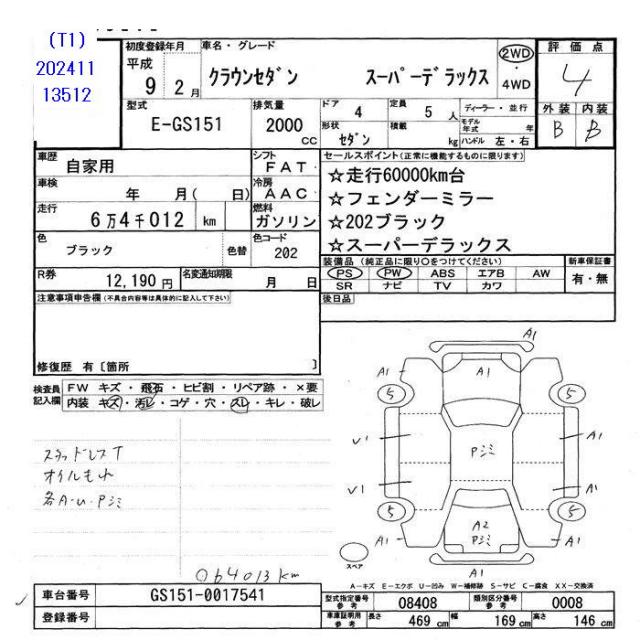 (T1)
202411
13512
初度登録年月
平成
9 2月
車名・グレード
クラウンセダン スーパーデラックス
2WD
・
4WD
評価点
4
外装 内装
B B
型式
E-GS151
排気量
2000
cc
ドア 4
定員 5 人
ディーラー・並行
モデル年式 年
形状 セダン
積載 kg
ハンドル 左・右
車歴
自家用
シフト
FAT
車検
年 月( 日)
冷房
AAC
走行
6万4千012 km
燃料
ガソリン
色
ブラック
色替
色コード
202
R券
12,190円
名変通知期限
月 日
セールスポイント(正常に機能するものに限ります)
☆走行60000km台
☆フェンダーミラー
☆202ブラック
☆スーパーデラックス
装備品(純正品に限り○をつけてください)
PS PW ABS エアB AW
SR ナビ TV カワ
新車保証書
有・無
後日品
注意事項申告欄(不具合内容等は具体的に記入して下さい)
修復歴 有〔箇所 〕
検査員
記入欄
FW キズ・飛石・ヒビ割・リペア跡・×要
内装 キズ・汚レ・コゲ・穴・スレ・キレ・破レ
スタッドレスT
オイルもれ
各A-U・Pシミ
064013km
A1
A1
A1
A1
5
5
V1
A1
Pシミ
V1
A1
5
5
A2
Pシミ
A1
A1
A1
スペア
A-キズ E-エクボ U-凹み W-補修跡 S-サビ C-腐食 XX-交換済
車台番号
GS151-0017541
登録番号
型式指定番号
参考
08408
類別区分番号
参考
0008
車庫証明用
参考
長さ 469 cm
幅 169 cm
高さ 146 cm